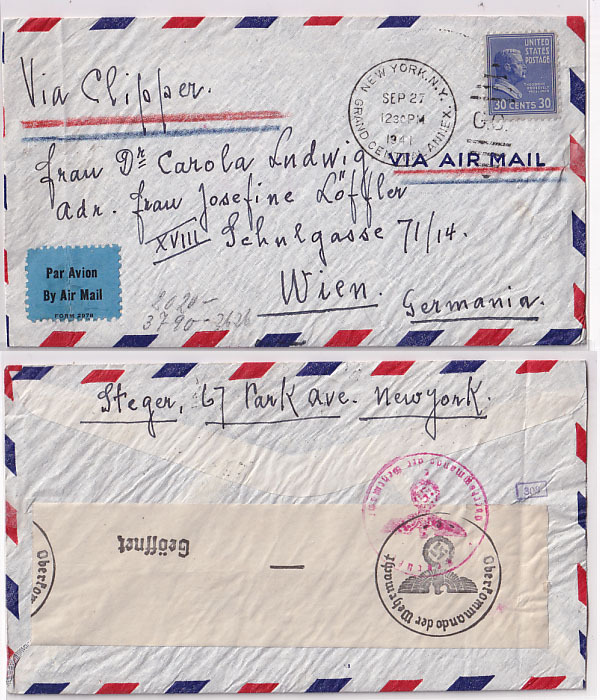 Via Clipper.
NEW YORK, N.Y.
SEP 27
12 30 PM
1941
GRAND CENTRAL ANNEX.
UNITED
STATES
POSTAGE
30 CENTS 30
G.C.
VIA AIR MAIL
Frau Dr Carola Ludwig
adr. Frau Josefine Löffler
XVIII Schulgasse 71/14.
Wien.
Germania.
Par Avion
By Air Mail
FORM 2978
2020 -
3790 - 2626
Steger, 67 Park ave. New york.
Geöffnet
Oberkommando der Wehrmacht
Oberkommando der Wehrmacht
Oberkom